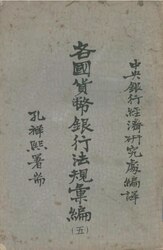 中央銀行經濟研究處編譯
各國貨幣銀行法規彙編
(五)
孔祥熙署耑